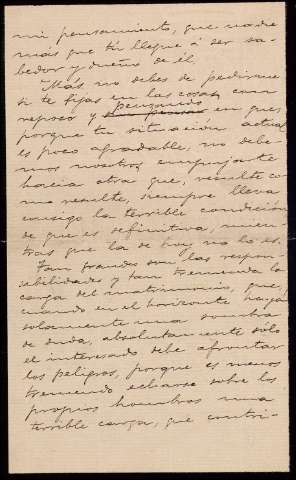 mi pensamiento, que nadie
más que tú llegue á ser sa-
bedor y dueño de él.
Más no debes de pedirme
si te fijas en las cosas con
reposo y pensando en que,
porque tu situación actual
es poco agradable, no debe-
mos nosotros empujarte
hacia otra que, resulte co-
mo resulte, siempre lleva
consigo la terrible condición
de que es definitiva, mien-
tras que la de hoy no lo es.
Tan grandes son las respon-
sabilidades y tan tremenda la
carga del matrimonio, que,
cuando en el horizonte haya
solamente una sombra
de duda, absolutamente sólo
el interesado debe afrontar
los peligros, porque es menos
tremendo echarse sobre los
propios hombros una
terrible carga, que contri-